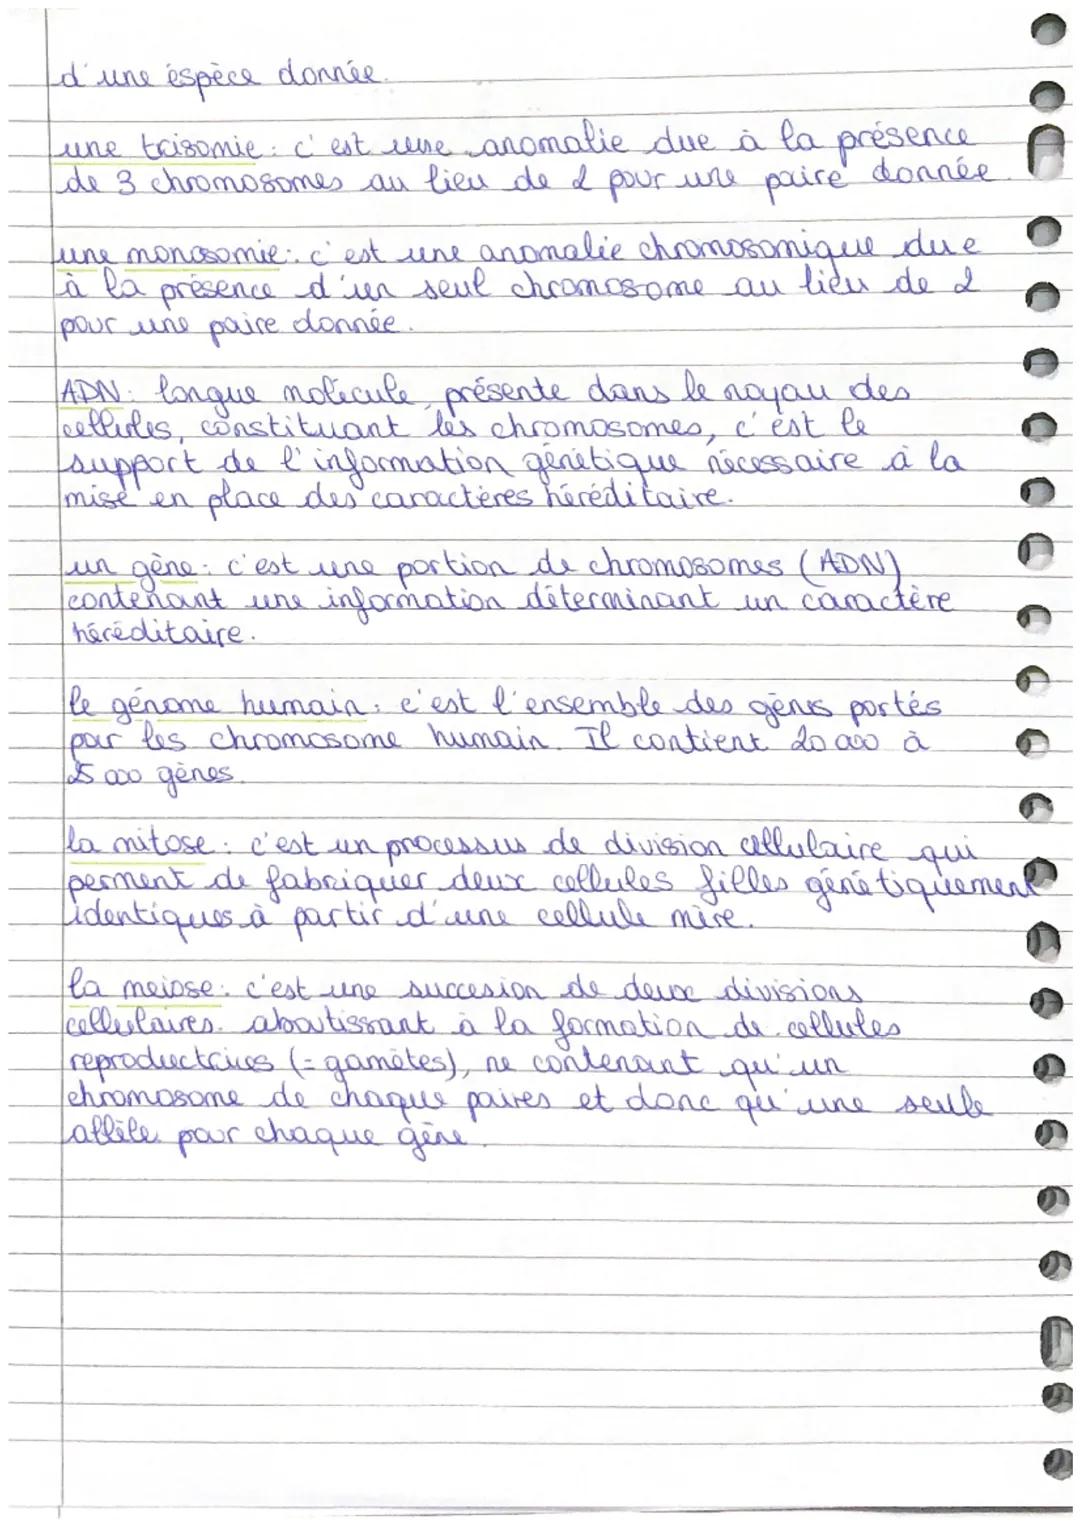 d'une éspèce donnée.
une trisomie : c'est une anomalie due à la présence
de 3 chromosomes au lieu de 2 pour une paire donnée.
une monosomie : c'est une anomalie chromosomique due
à la présence d'un seul chromosome au lieu de 2
pour une paire donnée.
ADN : longue molécule, présente dans le noyau des
cellules, constituant les chromosomes, c'est le
support de l'information génétique nécessaire à la
mise en place des caractères héréditaire.
un gène : c'est une portion de chromosomes (ADN)
contenant une information déterminant un caractère
héréditaire.
le génome humain : c'est l'ensemble des gènes portés
par les chromosome humain. Il contient 20 000 à
25 000 gènes.
la mitose : c'est un processus de division cellulaire qui
perment de fabriquer deux cellules filles génétiquement
identiques à partir d'une cellule mère.
la meiose : c'est une succesion de deux divisions
cellulaires aboutissant à la formation de cellules
reproductrices (= gamètes), ne contenant qu'un
chromosome de chaque paires et donc qu'une seule
allèle pour chaque gène.